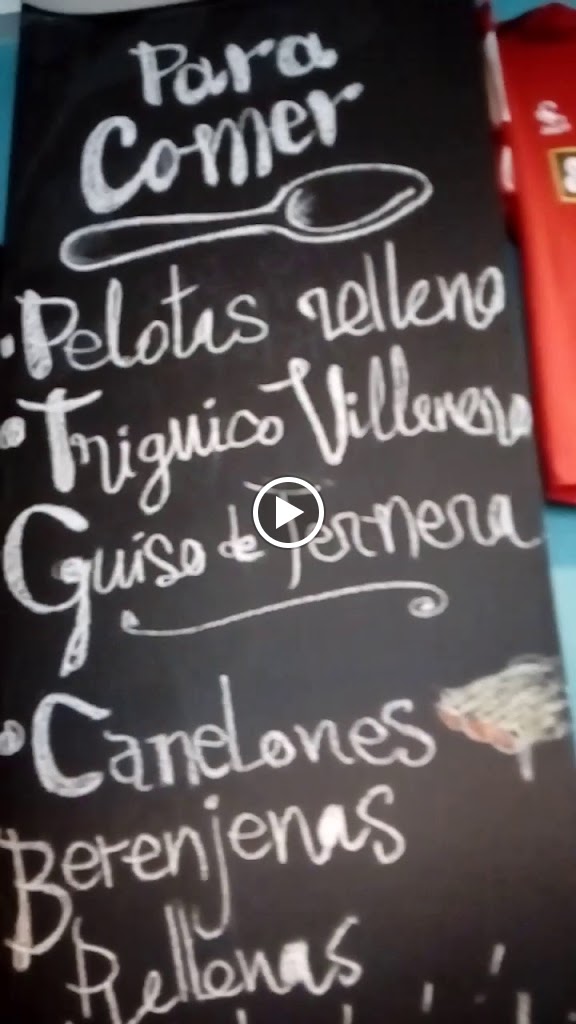 Para
Comer
• Pelotas relleno
• Triguico Villenero
Guiso de Ternera
• Canelones
Berenjenas
Rellenas